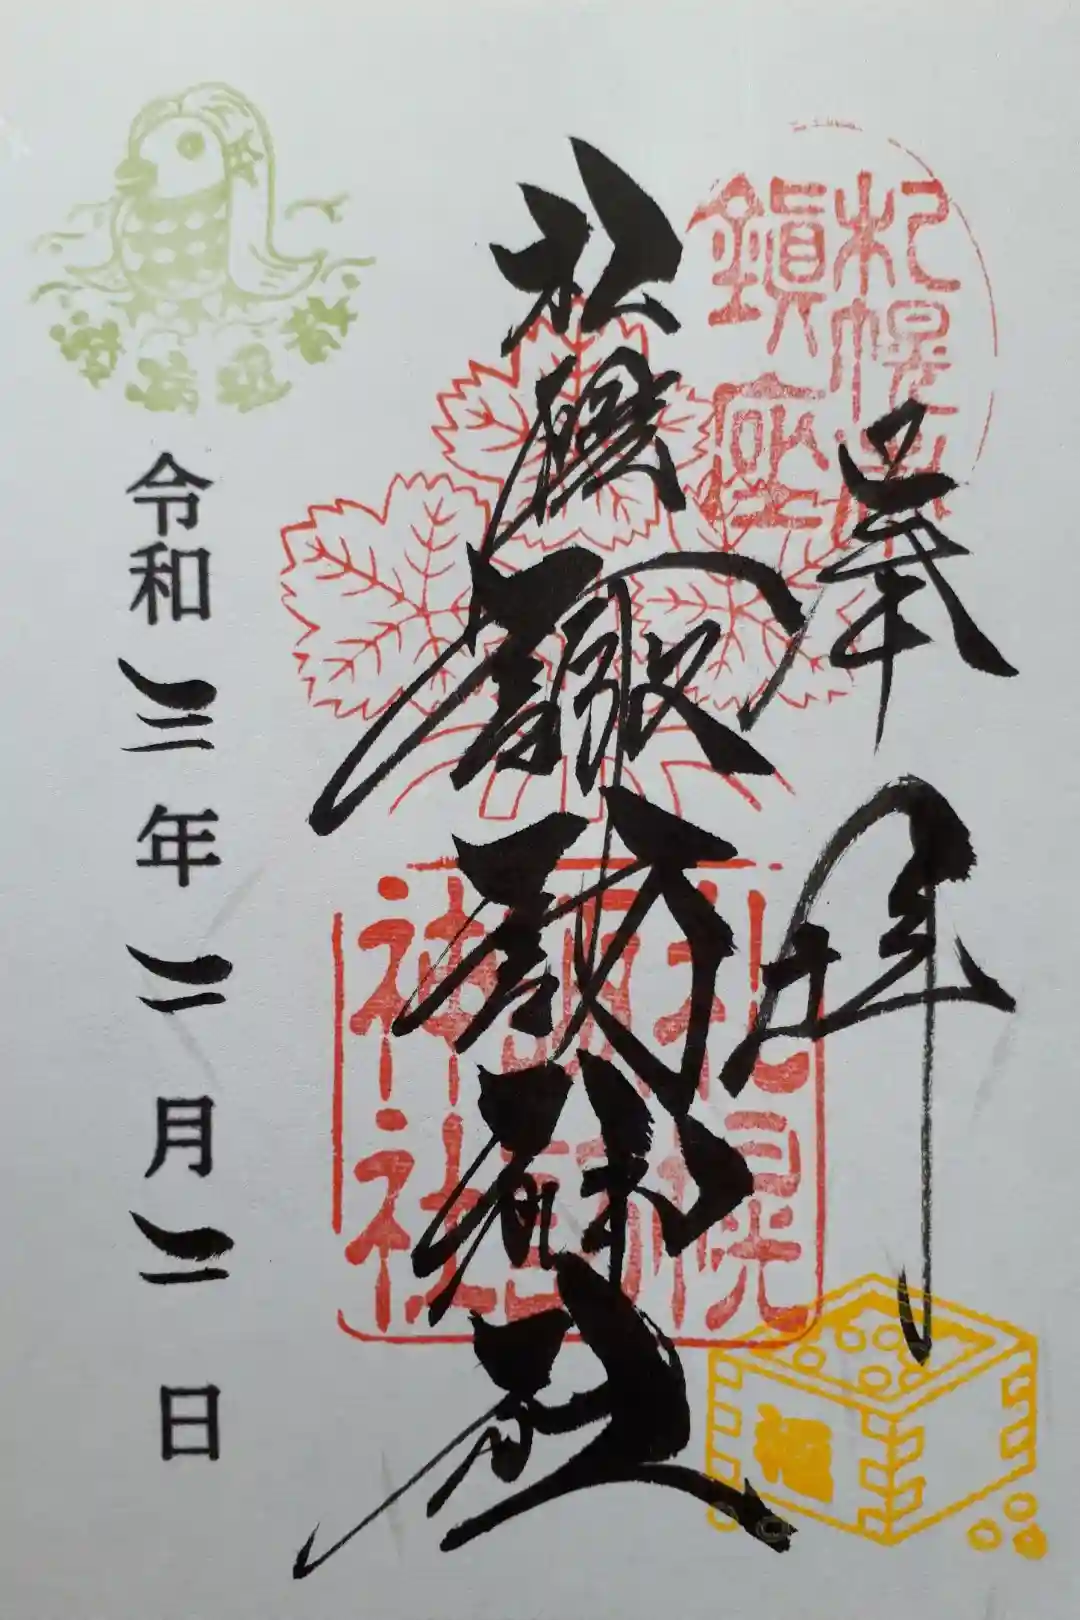 奉拝
札幌
鎮座
札幌諏訪神社
札幌
諏訪
神社
令和三年二月二日
福